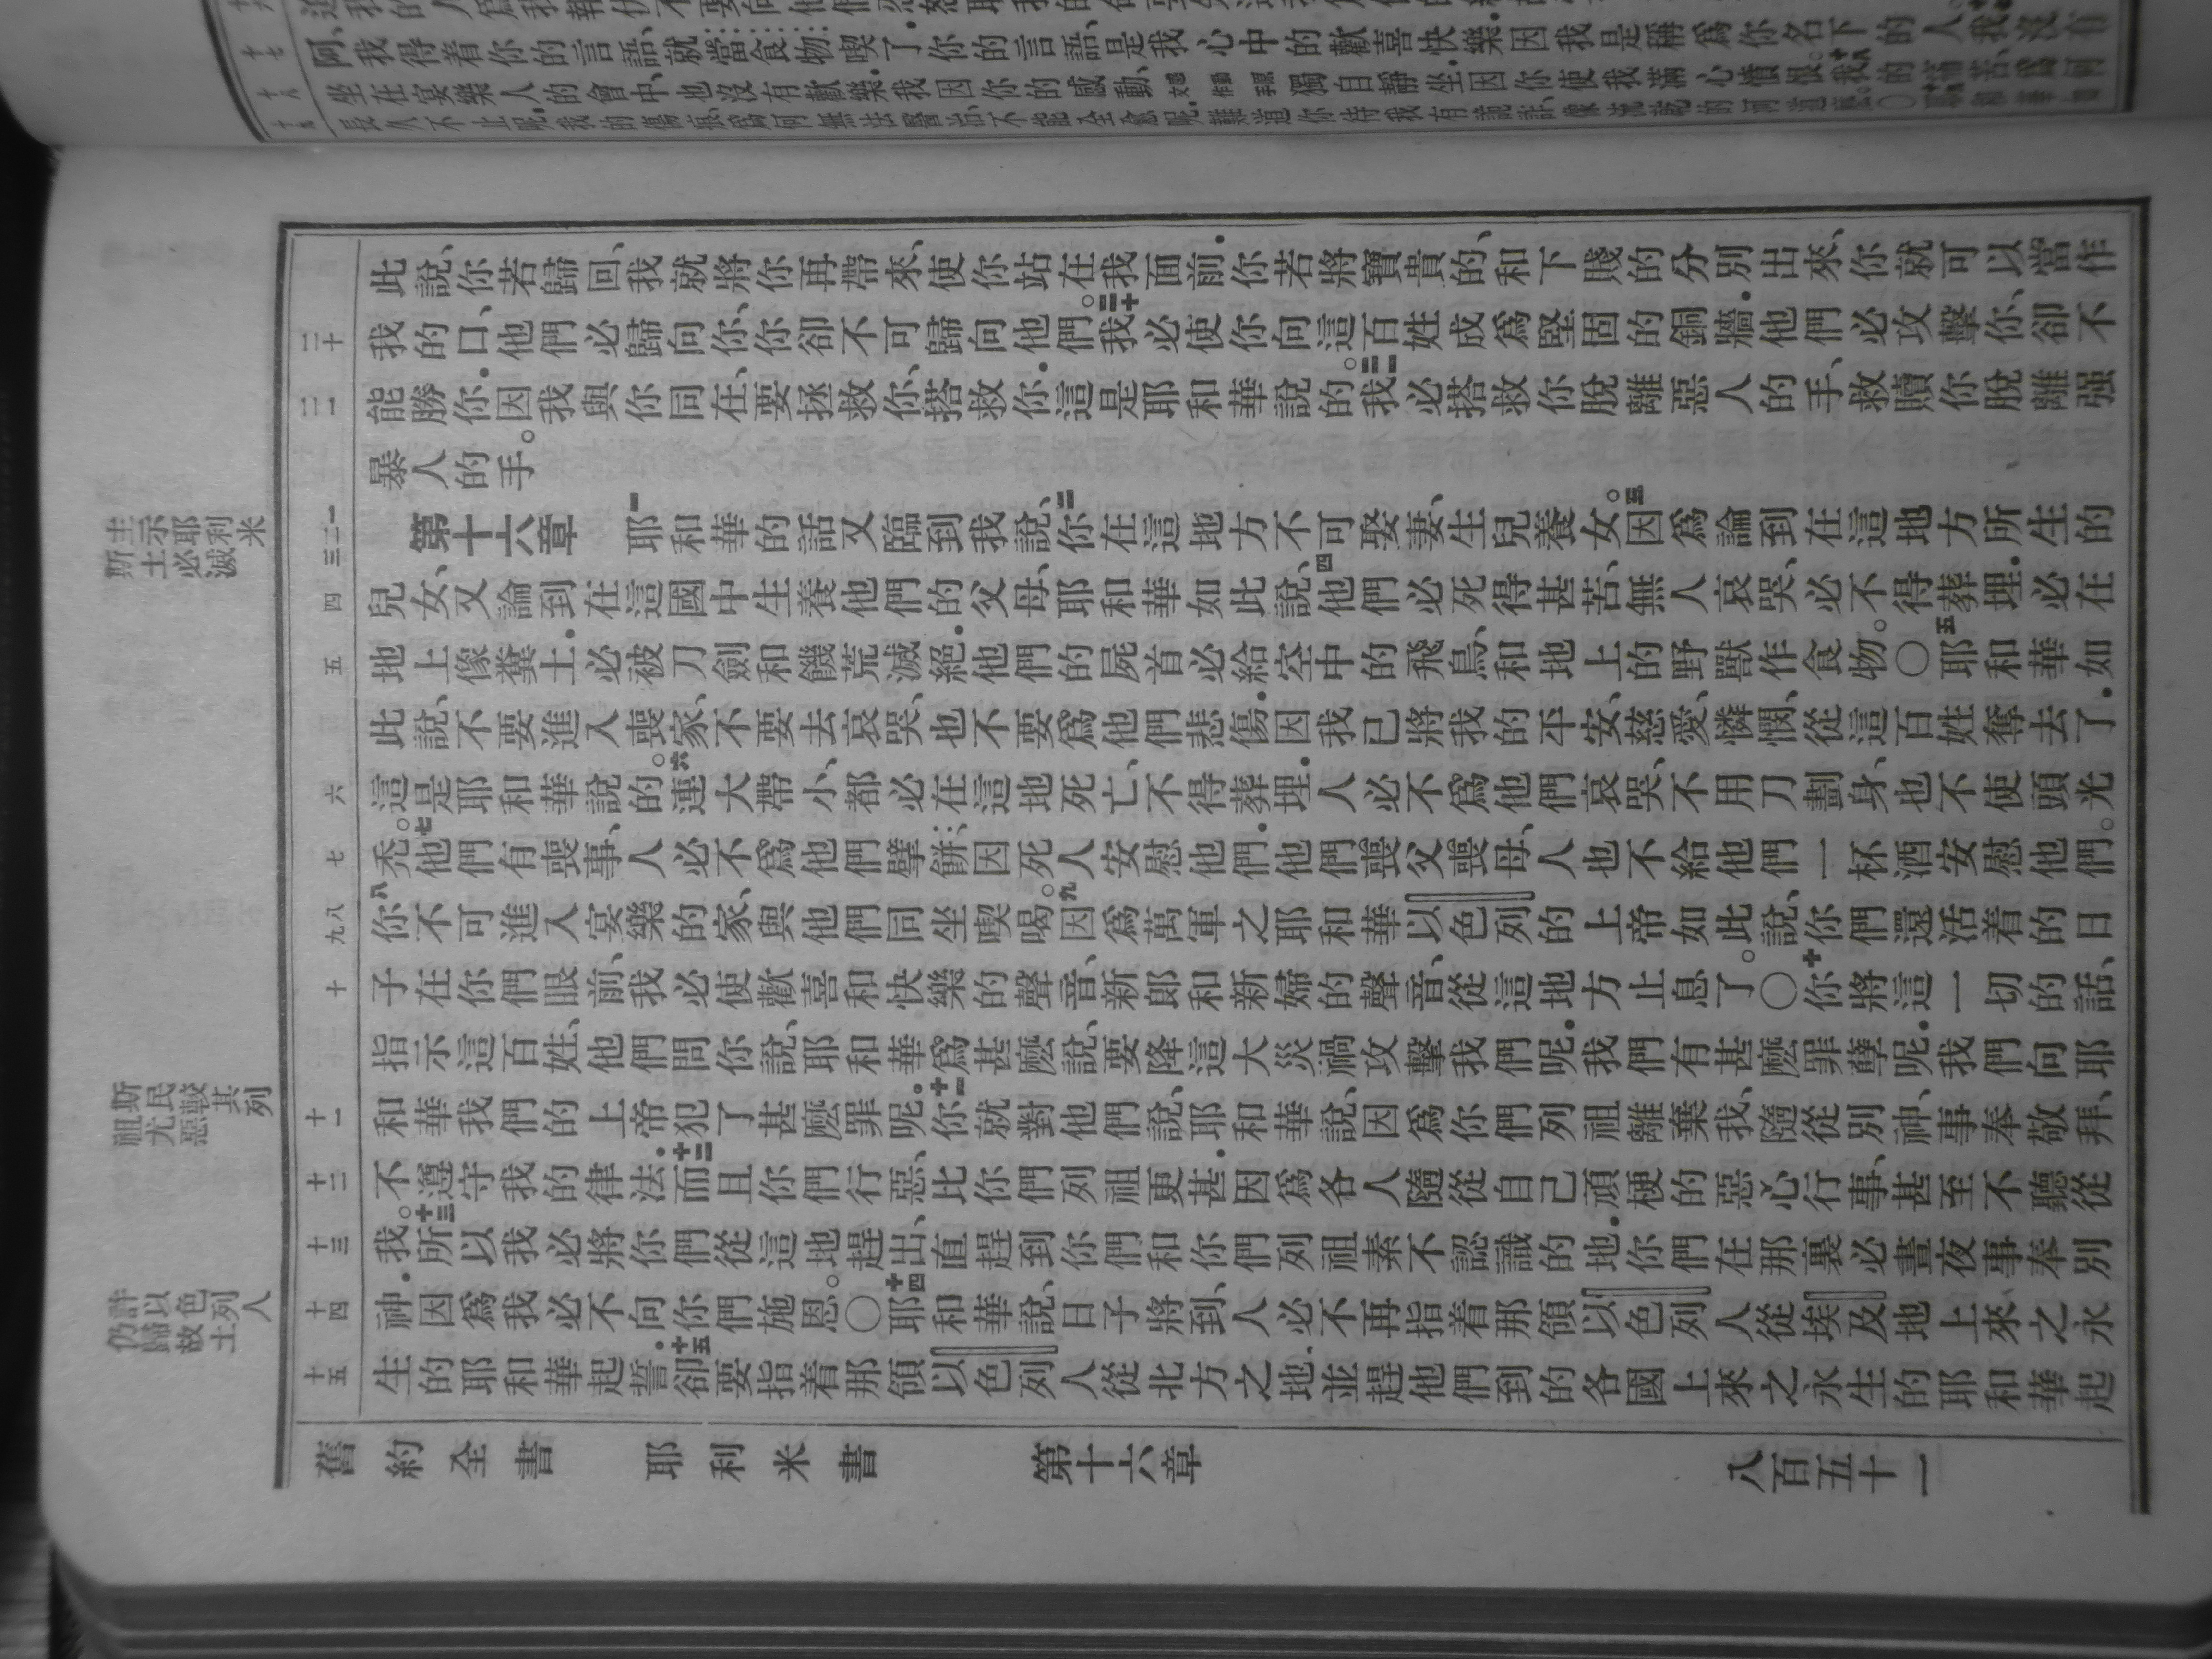 阿、我得着你的言語、就當食物喫了、你的言語、是我心中的歡喜快樂、因我是稱爲你名下的人。我沒有
坐在宴樂人的會中、也沒有歡樂、我因你的感動、獨自靜坐、因你使我滿心憤恨。我的
長久不止呢、我的傷痕爲何無法醫治、不能全愈呢、難道你待我有詭詐
此說、你若歸回、我就將你再帶來、使你站在我面前.你若將寶貴的、和下賤的分別出來、你就可以當作
二十 我的口、他們必歸向你、你卻不可歸向他們。二十我必使你向這百姓成爲堅固的銅牆.他們必攻擊你、卻不
二一 能勝你.因我與你同在、要拯救你、搭救你.這是耶和華說的。二一我必搭救你脫離惡人的手、救贖你脫離强
暴人的手。
一二三 第十六章 一耶和華的話又臨到我說、二你在這地方不可娶妻、生兒養女。三因爲論到在這地方所生的
四 兒女、又論到在這國中生養他們的父母、耶和華如此說、四他們必死得甚苦、無人哀哭、必不得葬埋.必在
五 地上像糞土.必被刀劍和饑荒滅絕.他們的屍首必給空中的飛鳥、和地上的野獸作食物。〇五耶和華如
此說、不要進入喪家、不要去哀哭、也不要爲他們悲傷.因我已將我的平安、慈愛、憐憫、從這百姓奪去了.
六 這是耶和華說的。六連大帶小、都必在這地死亡、不得葬埋.人必不爲他們哀哭、不用刀劃身、也不使頭光
七 禿。七他們有喪事、人必不爲他們擘餅、因死人安慰他們.他們喪父喪母、人也不給他們一杯酒安慰他們。
八九 八你不可進入宴樂的家、與他們同坐喫喝。九因爲萬軍之耶和華以色列的上帝如此說、你們還活着的日
十 子在你們眼前、我必使歡喜和快樂的聲音、新郎和新婦的聲音、從這地方止息了。〇十你將這一切的話、
指示這百姓、他們問你說、耶和華爲甚麼說、要降這大災禍攻擊我們呢.我們有甚麼罪孽呢.我們向耶
十一 和華我們的上帝犯了甚麼罪呢.十一你就對他們說、耶和華說、因爲你們列祖離棄我、隨從別神、事奉敬拜、
十二 不遵守我的律法.十二而且你們行惡、比你們列祖更甚.因爲各人隨從自己頑梗的惡心行事、甚至不聽從
十三 我。十三所以我必將你們從這地趕出、直趕到你們和你們列祖素不認識的地.你們在那裏必晝夜事奉別
十四 神.因爲我必不向你們施恩。〇十四耶和華說、日子將到、人必不再指着那領以色列人從埃及地上來之永
十五 生的耶和華起誓.十五卻要指着那領以色列人從北方之地、並趕他們到的各國上來之永生的耶和華起
主示耶利米
斯土必滅
斯民較其列
祖尤惡
許以色列人
仍歸故土
舊約全書 耶利米書 第十六章 八百五十一